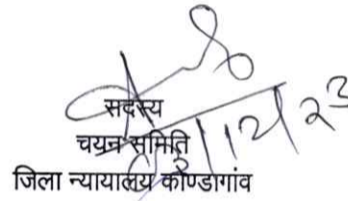 सदस्य
चयन समिति
जिला न्यायालय कोण्डागांव